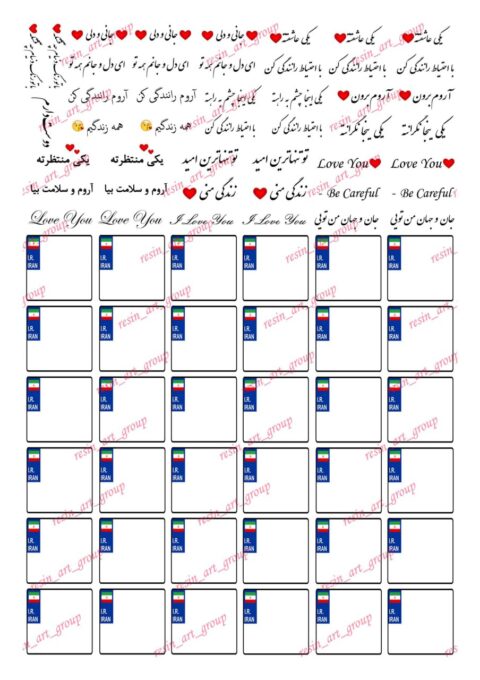 یکی عاشقته یکی عاشقته یکی عاشقته جانی و دلی جانی و دلی جانی و دلی
با احتیاط رانندگی کن با احتیاط رانندگی کن با احتیاط رانندگی کن ای دل و جانم همه تو ای دل و جانم همه تو ای دل و جانم همه تو
آروم برون آروم برون یکی اینجا چشم به راهته یکی اینجا چشم به راهته آروم رانندگی کن آروم رانندگی کن
یکی اینجا نگرانته یکی اینجا نگرانته با احتیاط رانندگی کن با احتیاط رانندگی کن همه زندگیم همه زندگیم
Love You Love You تو تنهاترین امید تو تنهاترین امید یکی منتظرته یکی منتظرته
- Be Careful - Be Careful زندگی منی زندگی منی آروم و سلامت بیا آروم و سلامت بیا
Love You Love You I Love You I Love You جان و جهان من تویی جان و جهان من تویی
دوست دارم
I.R. IRAN I.R. IRAN I.R. IRAN I.R. IRAN I.R. IRAN I.R. IRAN
I.R. IRAN I.R. IRAN I.R. IRAN I.R. IRAN I.R. IRAN I.R. IRAN
I.R. IRAN I.R. IRAN I.R. IRAN I.R. IRAN I.R. IRAN I.R. IRAN
I.R. IRAN I.R. IRAN I.R. IRAN I.R. IRAN I.R. IRAN I.R. IRAN
I.R. IRAN I.R. IRAN I.R. IRAN I.R. IRAN I.R. IRAN I.R. IRAN
I.R. IRAN I.R. IRAN I.R. IRAN I.R. IRAN I.R. IRAN I.R. IRAN
resin_art_group